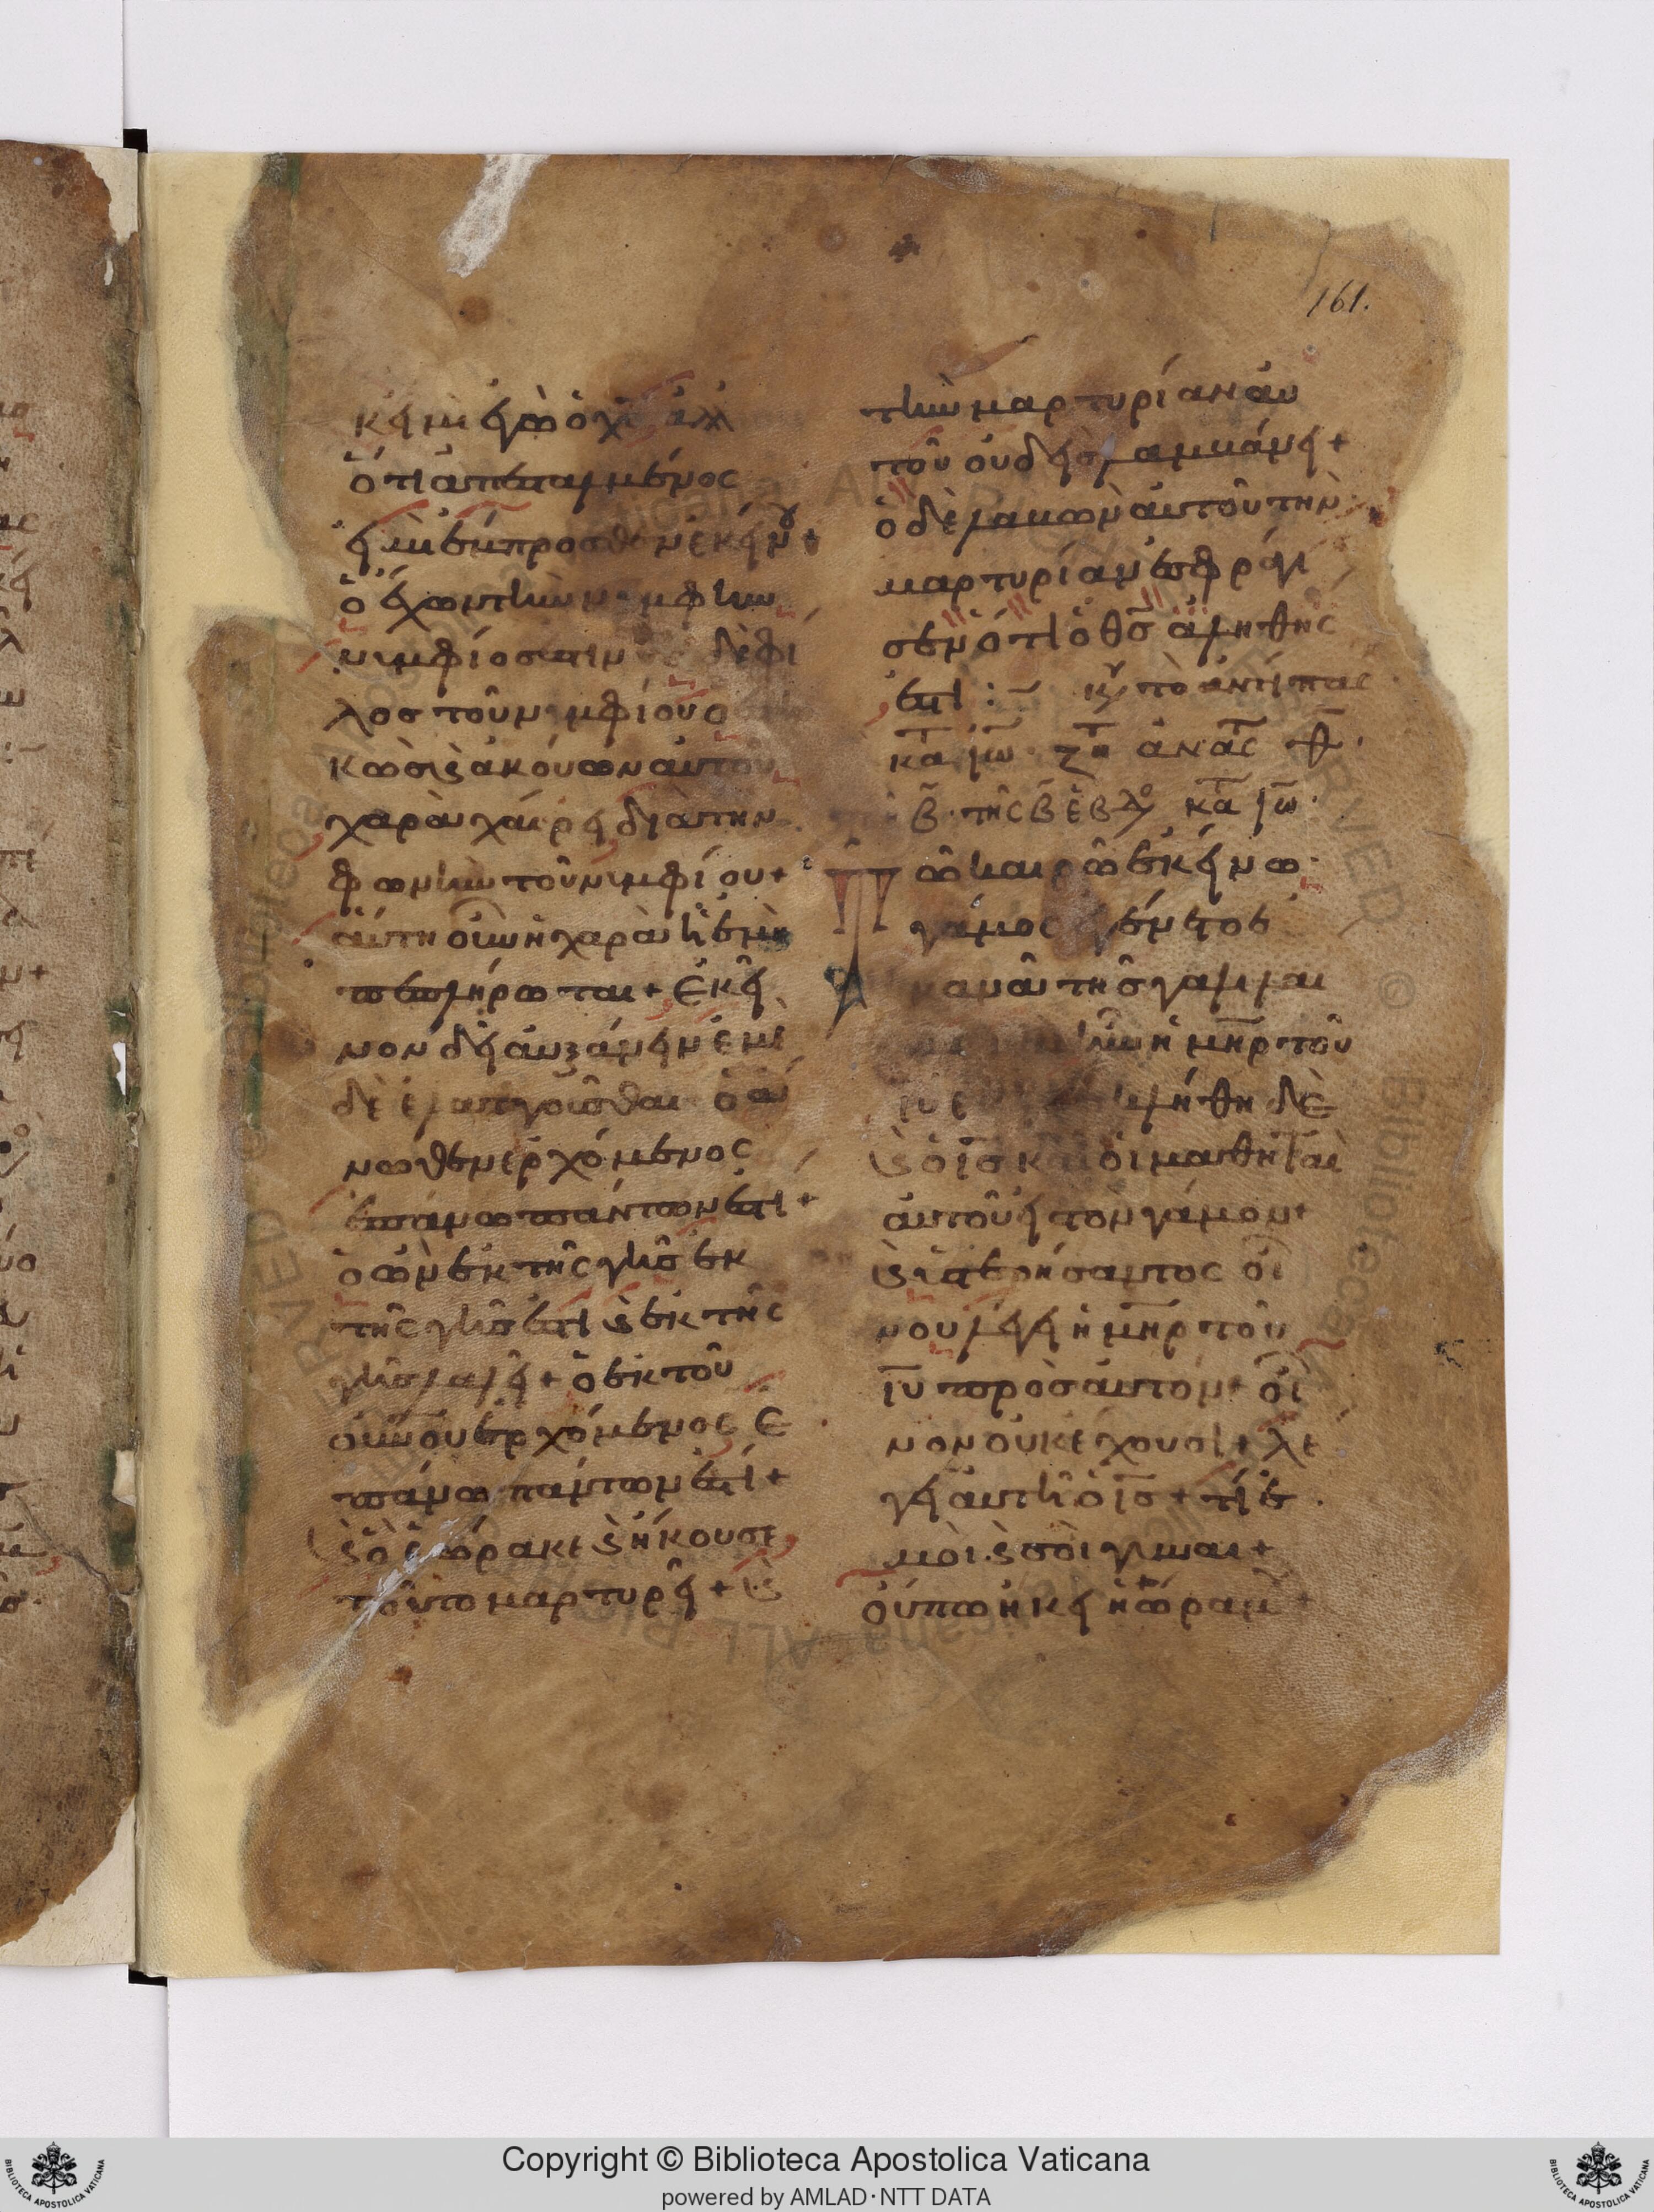 161.
κει μι εγω ο χς αλλ
ὅτι ἀπεσταλμένος
εἰμὶ ἔμπροσθεν ἐκείνου +
ὁ ἔχων τὴν νυμφην
νυμφίος ἐστιν ὁ δὲ φί
λος τοῦ νυμφίου ὁ
κὼς ϗ ἀκούων αὐτοῦ
χαρὰν χαίρει διὰ τὴν
φωνὴν τοῦ νυμφίου +
ἅυτη οὖν ἡ χαρὰ ἡ ἐμὴ
πεπλήρωται + Ἐκεῖ
νον δεῖ ἀυξάνειν ἐμὲ
δὲ ἐλαττοῦσθαι ὁ ἄ
νωθεν ἐρχόμενος
ἐπάνω πάντων ἐστι +
ὁ ὢν ἐκ τῆς γῆς ἐκ
τῆς γῆς ἐστι ϗ ἐκ τῆς
γῆς λαλεῖ + ὁ ἐκ τοῦ
οὐνου ἐρχόμενος ἐ
πάνω πάντων ἐστι +
ϗ ὃ ἑώρακε ϗ ἤκουσε
τοῦτο μαρτυρεῖ + ϗ
τὴν μαρτυρίαν αὐ
τοῦ οὐδεὶς λαμβάνει +
ὁ δὲ λαβὼν αὐτοῦ τὴν
μαρτυρίαν ἐσφράγι
σεν ὅτι ὁ θς ἀληθής
ἐστι :
κατ ιω
β της β ἑβδ κατ ιω
Τῶ καιρῶ ἐκείνω
γάμος ἐγένετο ἐ
ν κανᾶ τῆς γαλιλαι
ην ἡ μηρ τοῦ
ιυ ἐκεῖ ἐκλήθη δὲ
ϗ ὁ ις και οἱ μαθηταὶ
αὐτοῦ εἰς τὸν γάμον +
ϗ ὑστερήσαντος οἴ
νου λέγει ἡ μηρ τοῦ
ιυ πρὸς αὐτόν + οἶ
νον οὐκ ἔχουσι + λέ
γει αὐτῆ ὁ ις + τί ἐ
μοὶ ϗ σοὶ γύναι +
οὔπω ἥκει ἡ ὥρα μου +
Copyright © Biblioteca Apostolica Vaticana
powered by AMLAD·NTT DATA